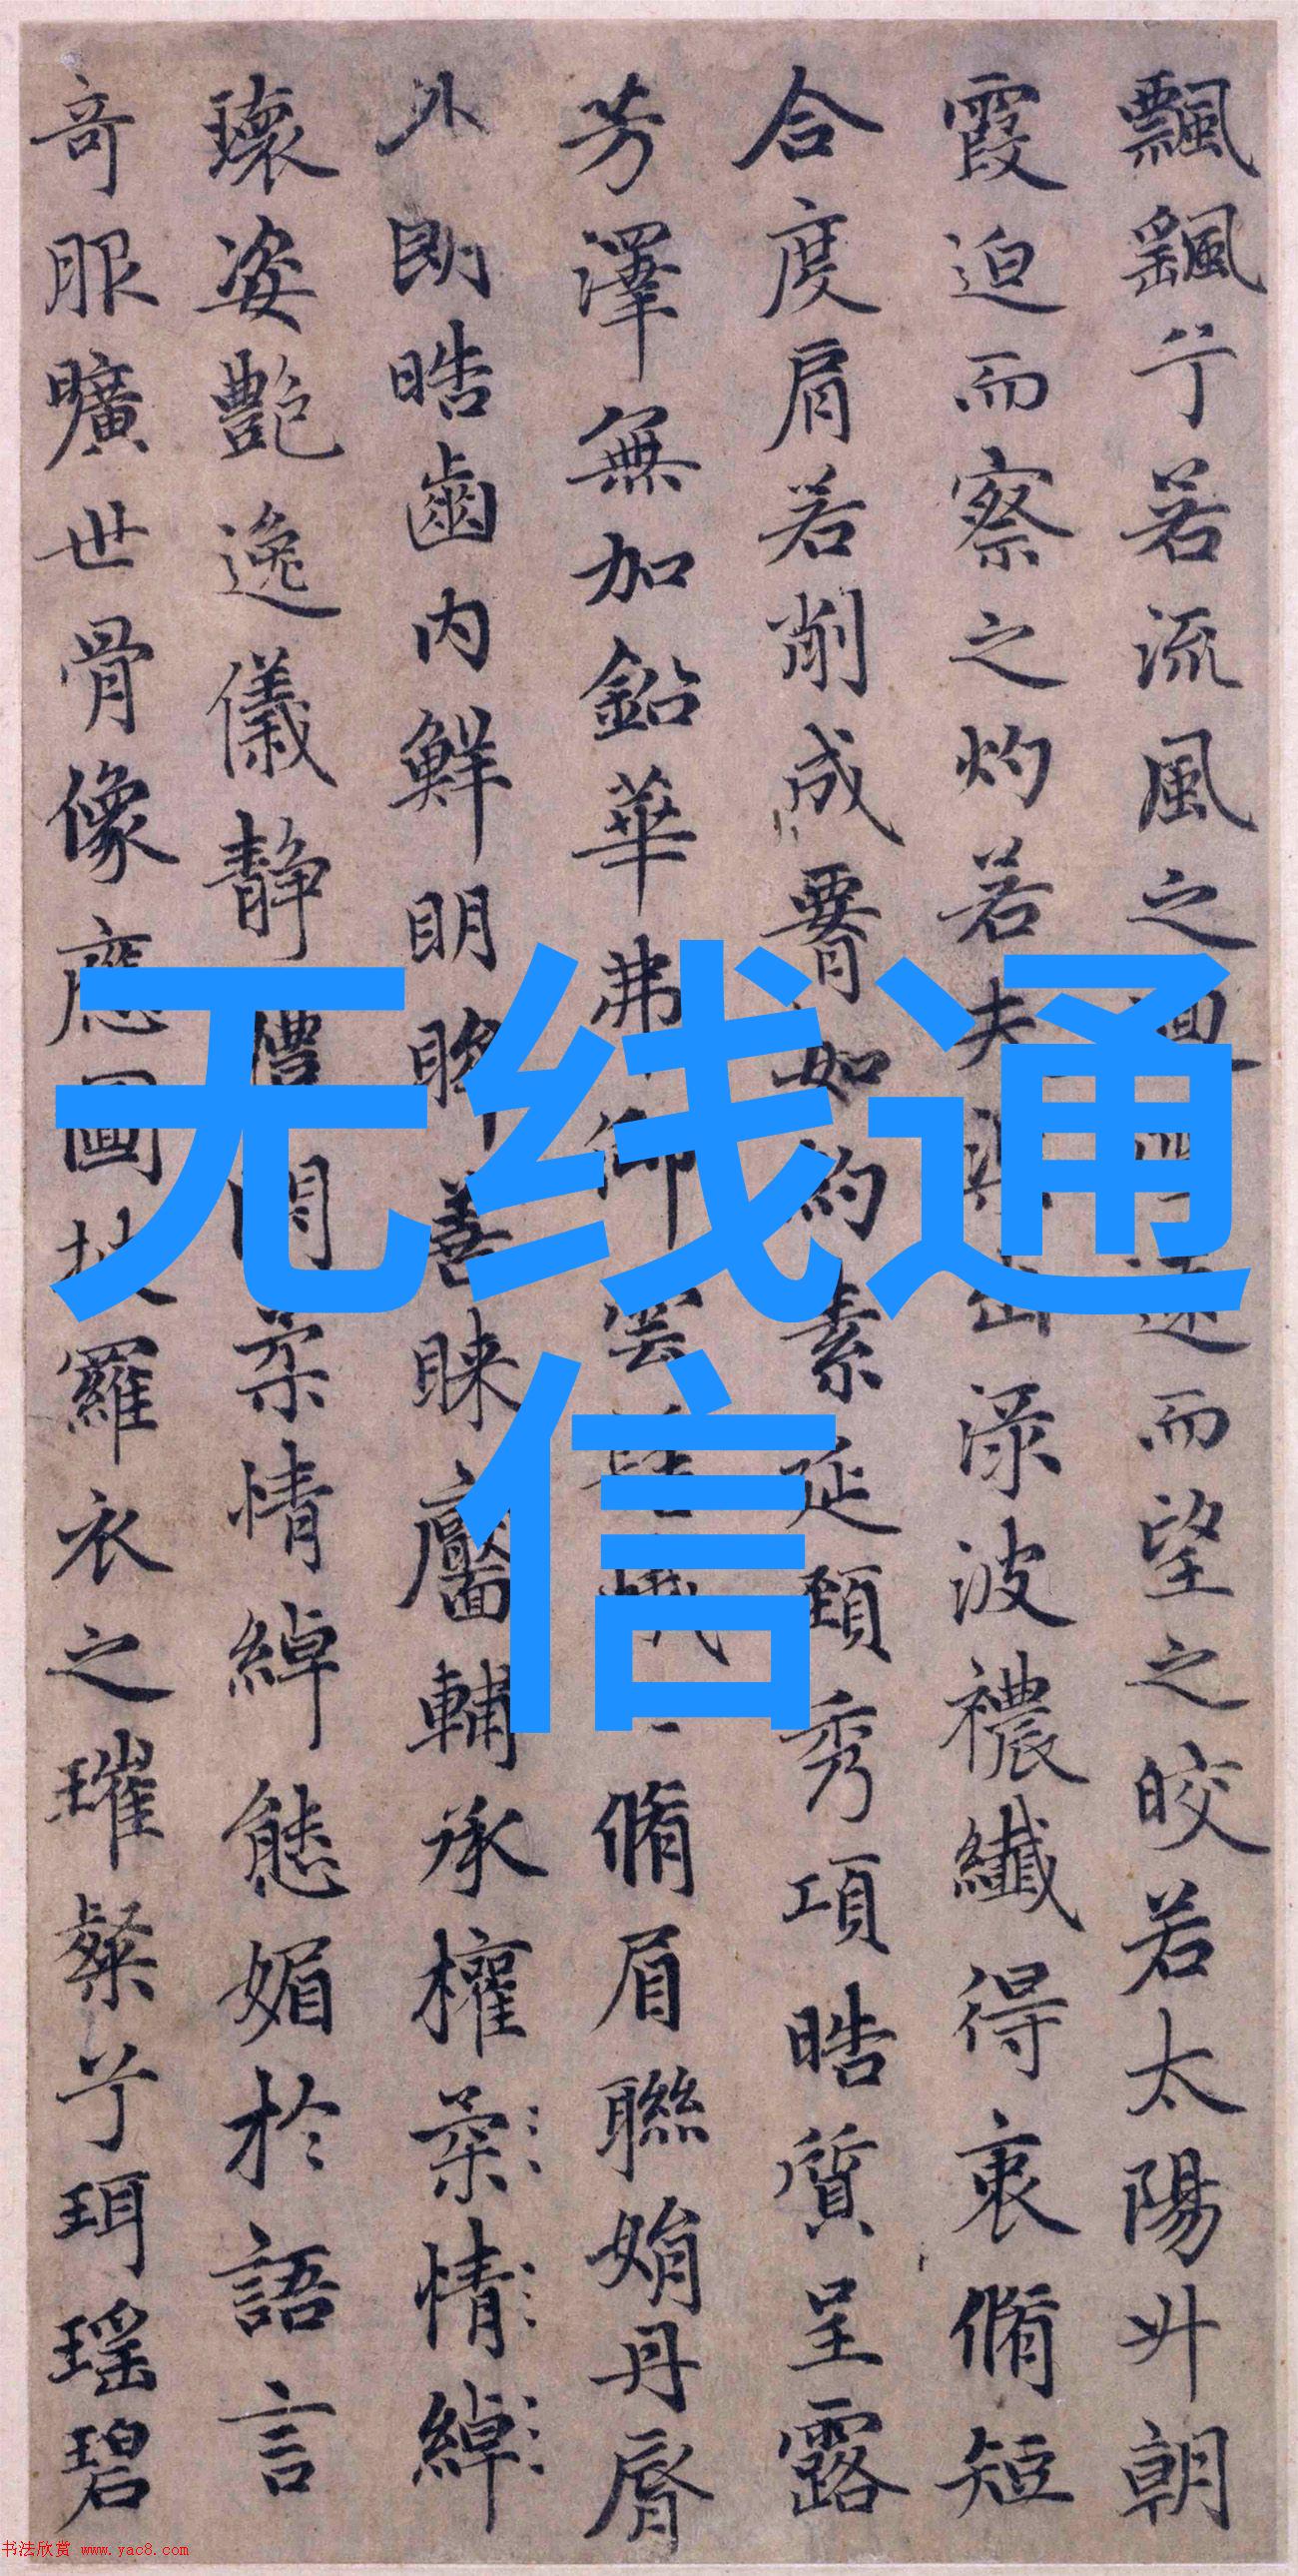 飄飖兮若流風之迴而望之皎若太陽升朝
霞迫而察之灼若夫出渌波襛纖得衷脩短
合度肩若削成要如約素延頸秀項皓質呈露
芳澤無加鉛華弗御雲脩眉聯娟丹脣
外朗皓齒內鮮明眸善睞靨輔承權柔情綽
瓌姿艷逸儀靜體閑柔情綽態媚於語言
奇服曠世骨像應圖披羅衣之璀粲兮珥瑤碧
无线通
信
书法欣赏 www.yac8.com